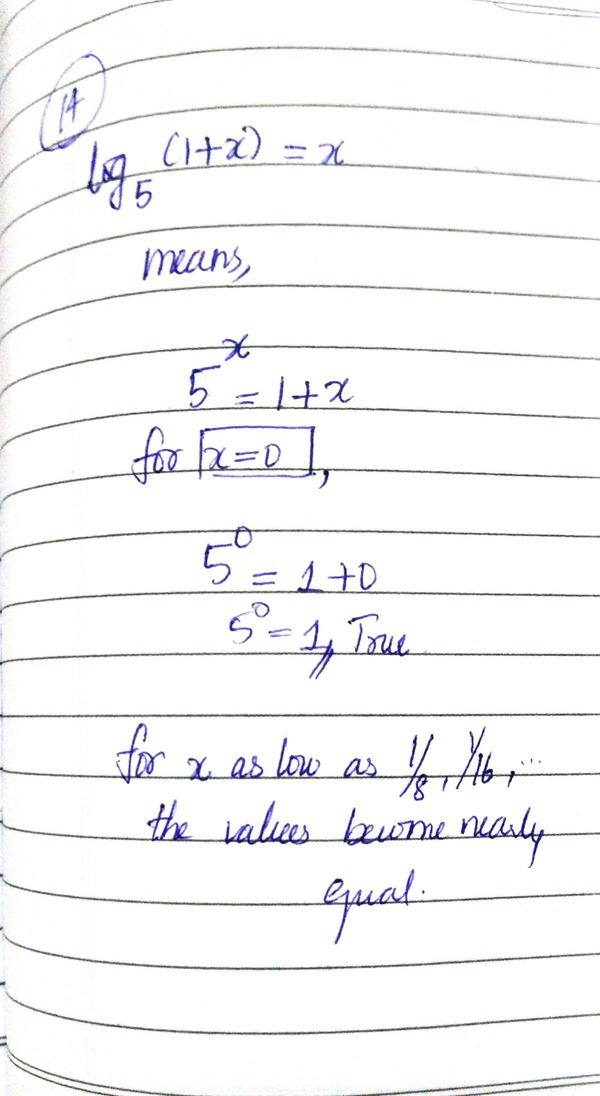 14
log₅ (1+x) = x
means,
5ˣ = 1+x
for x=0,
5⁰ = 1+0
5⁰ = 1, True
for x as low as 1/8, 1/16, ...
the values become nearly
equal.